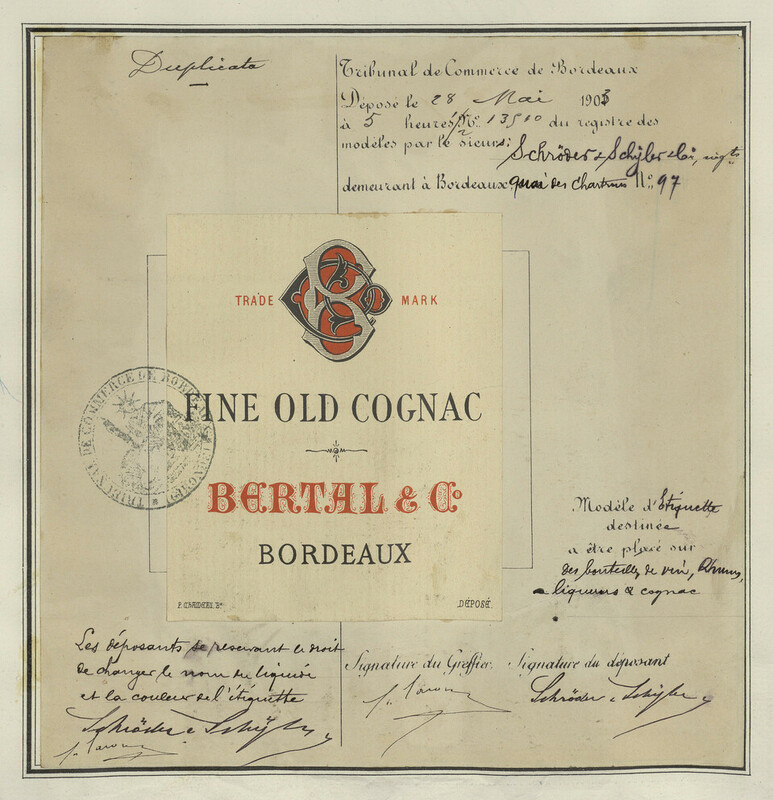 Duplicata
Tribunal de Commerce de Bordeaux
Déposé le 28 Mai 1903
à 5 heures 1/2 No. 13500 du registre des
modèles par le sieurs: Schröder & Schÿler & Cie, négts
demeurant à Bordeaux quai des Chartrons No 97
TRADE MARK
FINE OLD COGNAC
BERTAL & Co
BORDEAUX
DÉPOSÉ.
TRIBUNAL DE COMMERCE DE BORDEAUX
Modèle d'Étiquette
destinée
a être placé sur
des bouteilles de vin, Rhums,
liqueurs & cognac
Les déposants se reservant le droit
de changer le nom du liquide
et la couleur de l'étiquette
Schröder & Schÿler
Signature du Greffier
Signature du déposant
Schröder & Schÿler